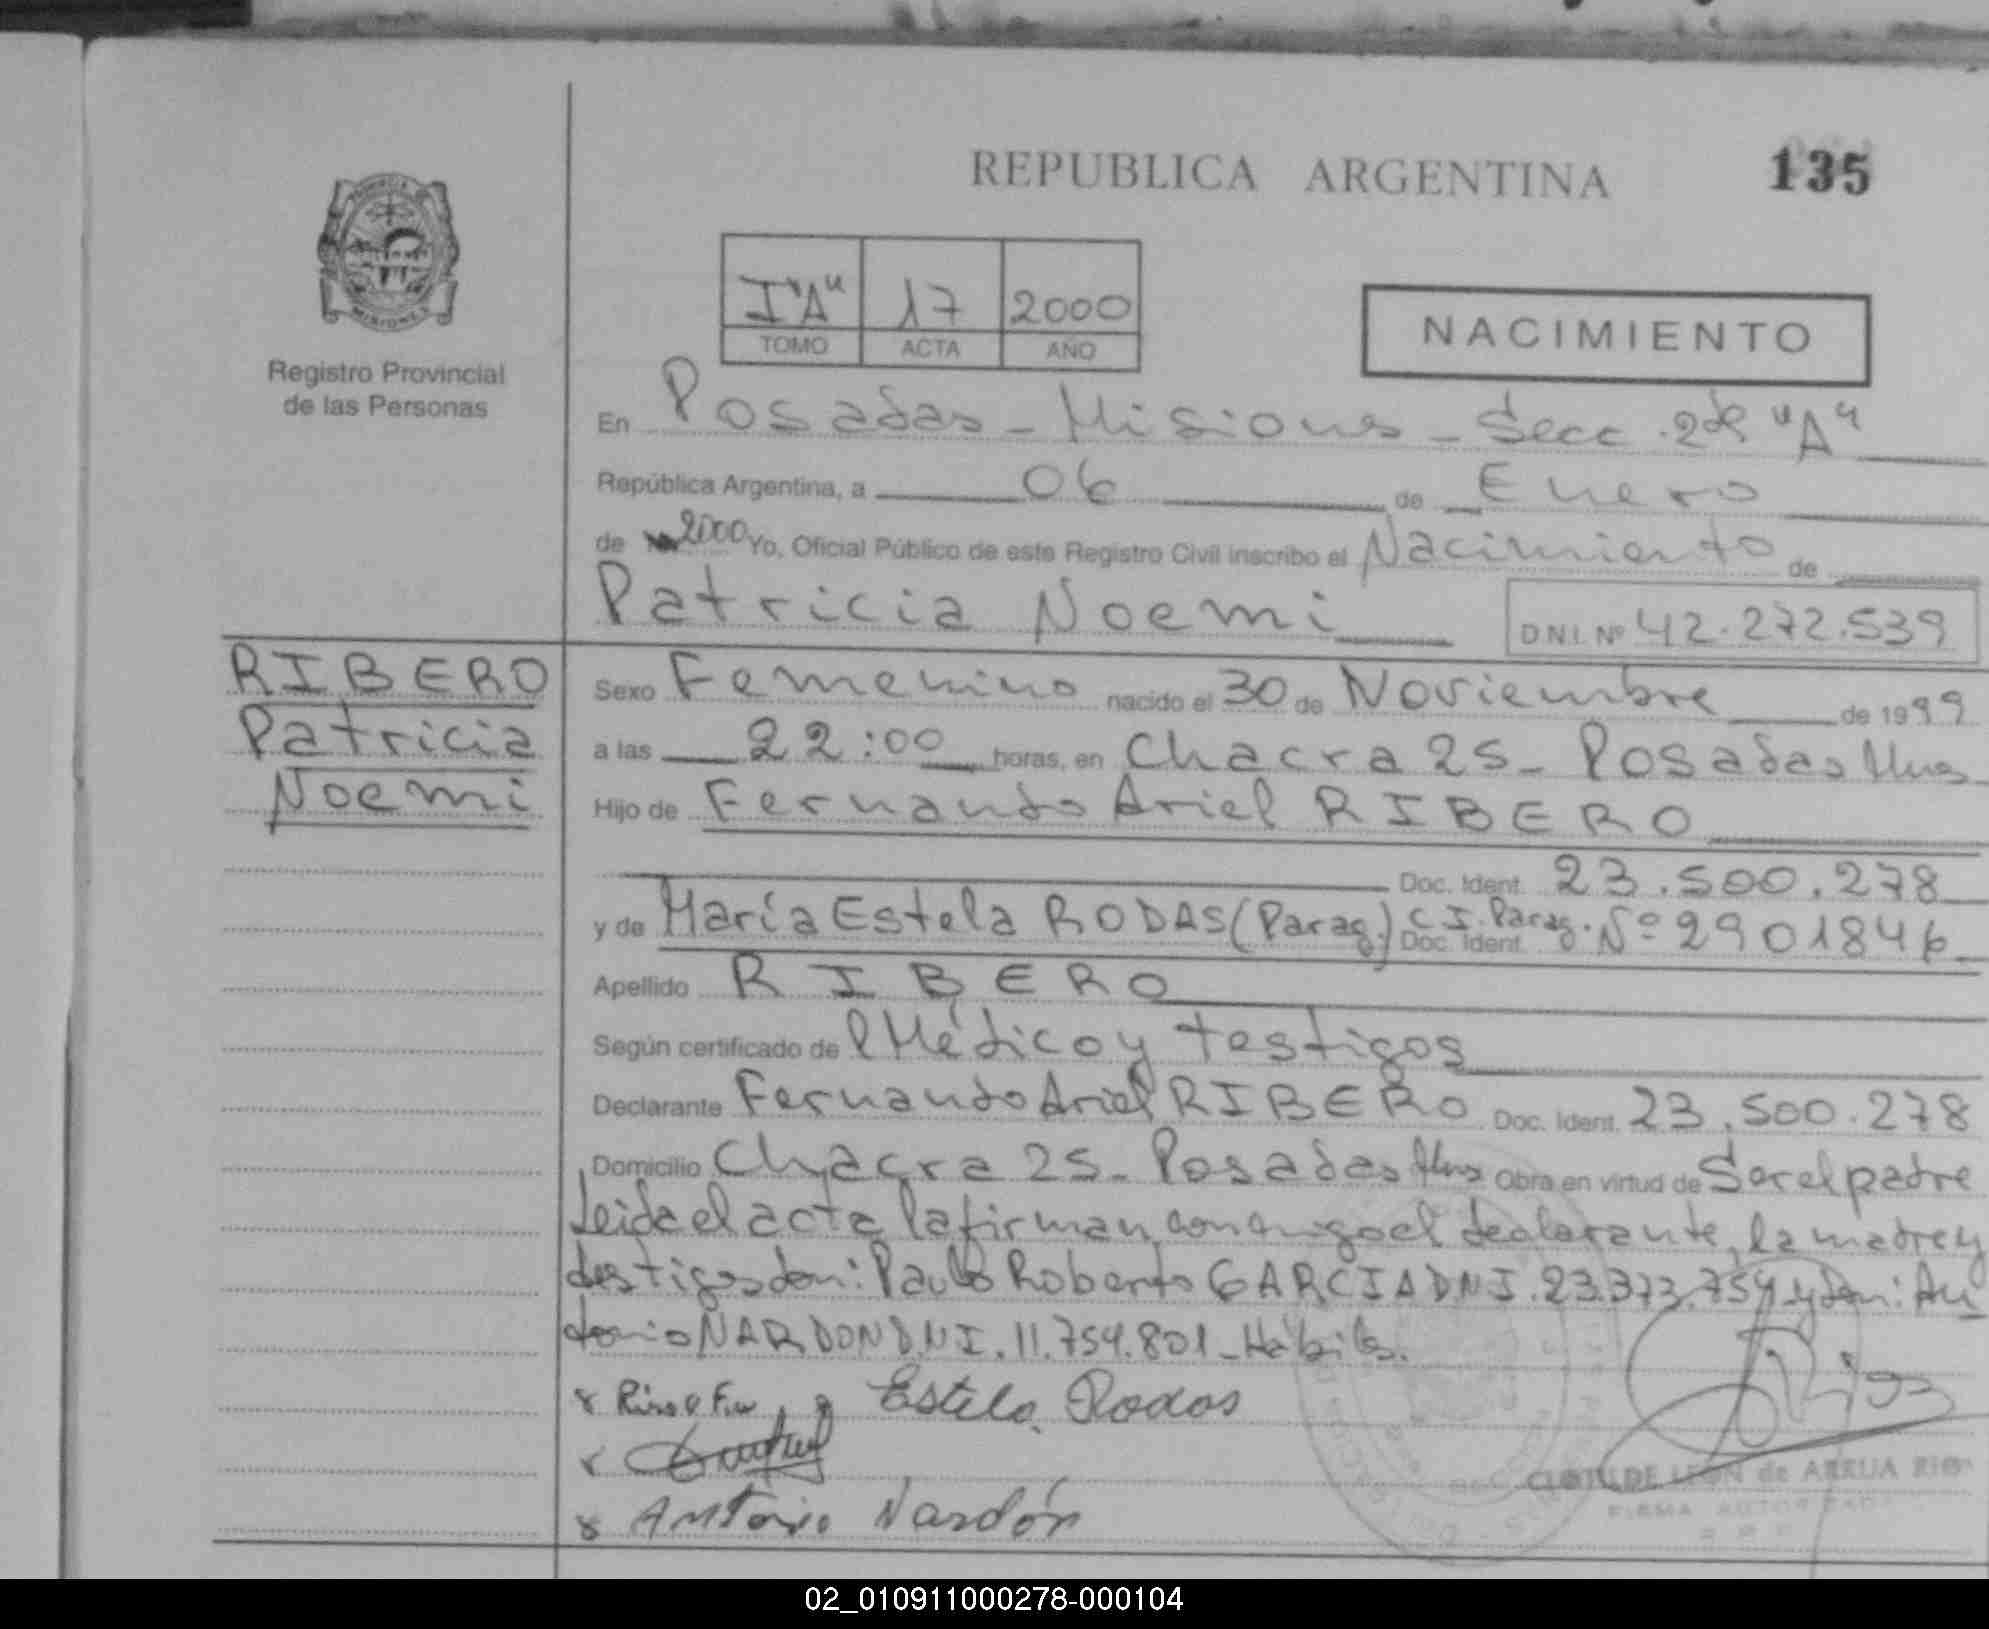 REPUBLICA ARGENTINA
135
PROVINCIA DE
MISIONES
Registro Provincial
de las Personas
I "A" 17 2000
TOMO ACTA AÑO
NACIMIENTO
En Posadas - Misiones - Secc. 2da "A"
República Argentina, a 06 de Enero
de 2000 Yo, Oficial Público de este Registro Civil inscribo el Nacimiento de
Patricia Noemi
D.N.I. Nº 42.272.539
RIBERO
Patricia
Noemi
Sexo Femenino nacido el 30 de Noviembre de 1999
a las 22:00 horas, en Chacra 25 - Posadas Mnes
Hijo de Fernando Ariel RIBERO
Doc. Ident. 23.500.278
y de María Estela RODAS (Parag.) Doc. Ident. C.I. Parag. Nº 2901846
Apellido RIBERO
Según certificado de l Médico y testigos
Declarante Fernando Ariel RIBERO Doc. Ident. 23.500.278
Domicilio Chacra 25 - Posadas Mnes Obra en virtud de Ser el padre
Leida el acta la firman conmigo el declarante, la madre y
testigos don: Paulo Roberto GARCIA DNI. 23.373.754 y don: An
tonio NARDON DNI. 11.754.801 - Hábiles.
Estela Rodas
Antonio Nardón
CLOTILDE LEON de ARRUA RIOS
FIRMA AUTORIZADA